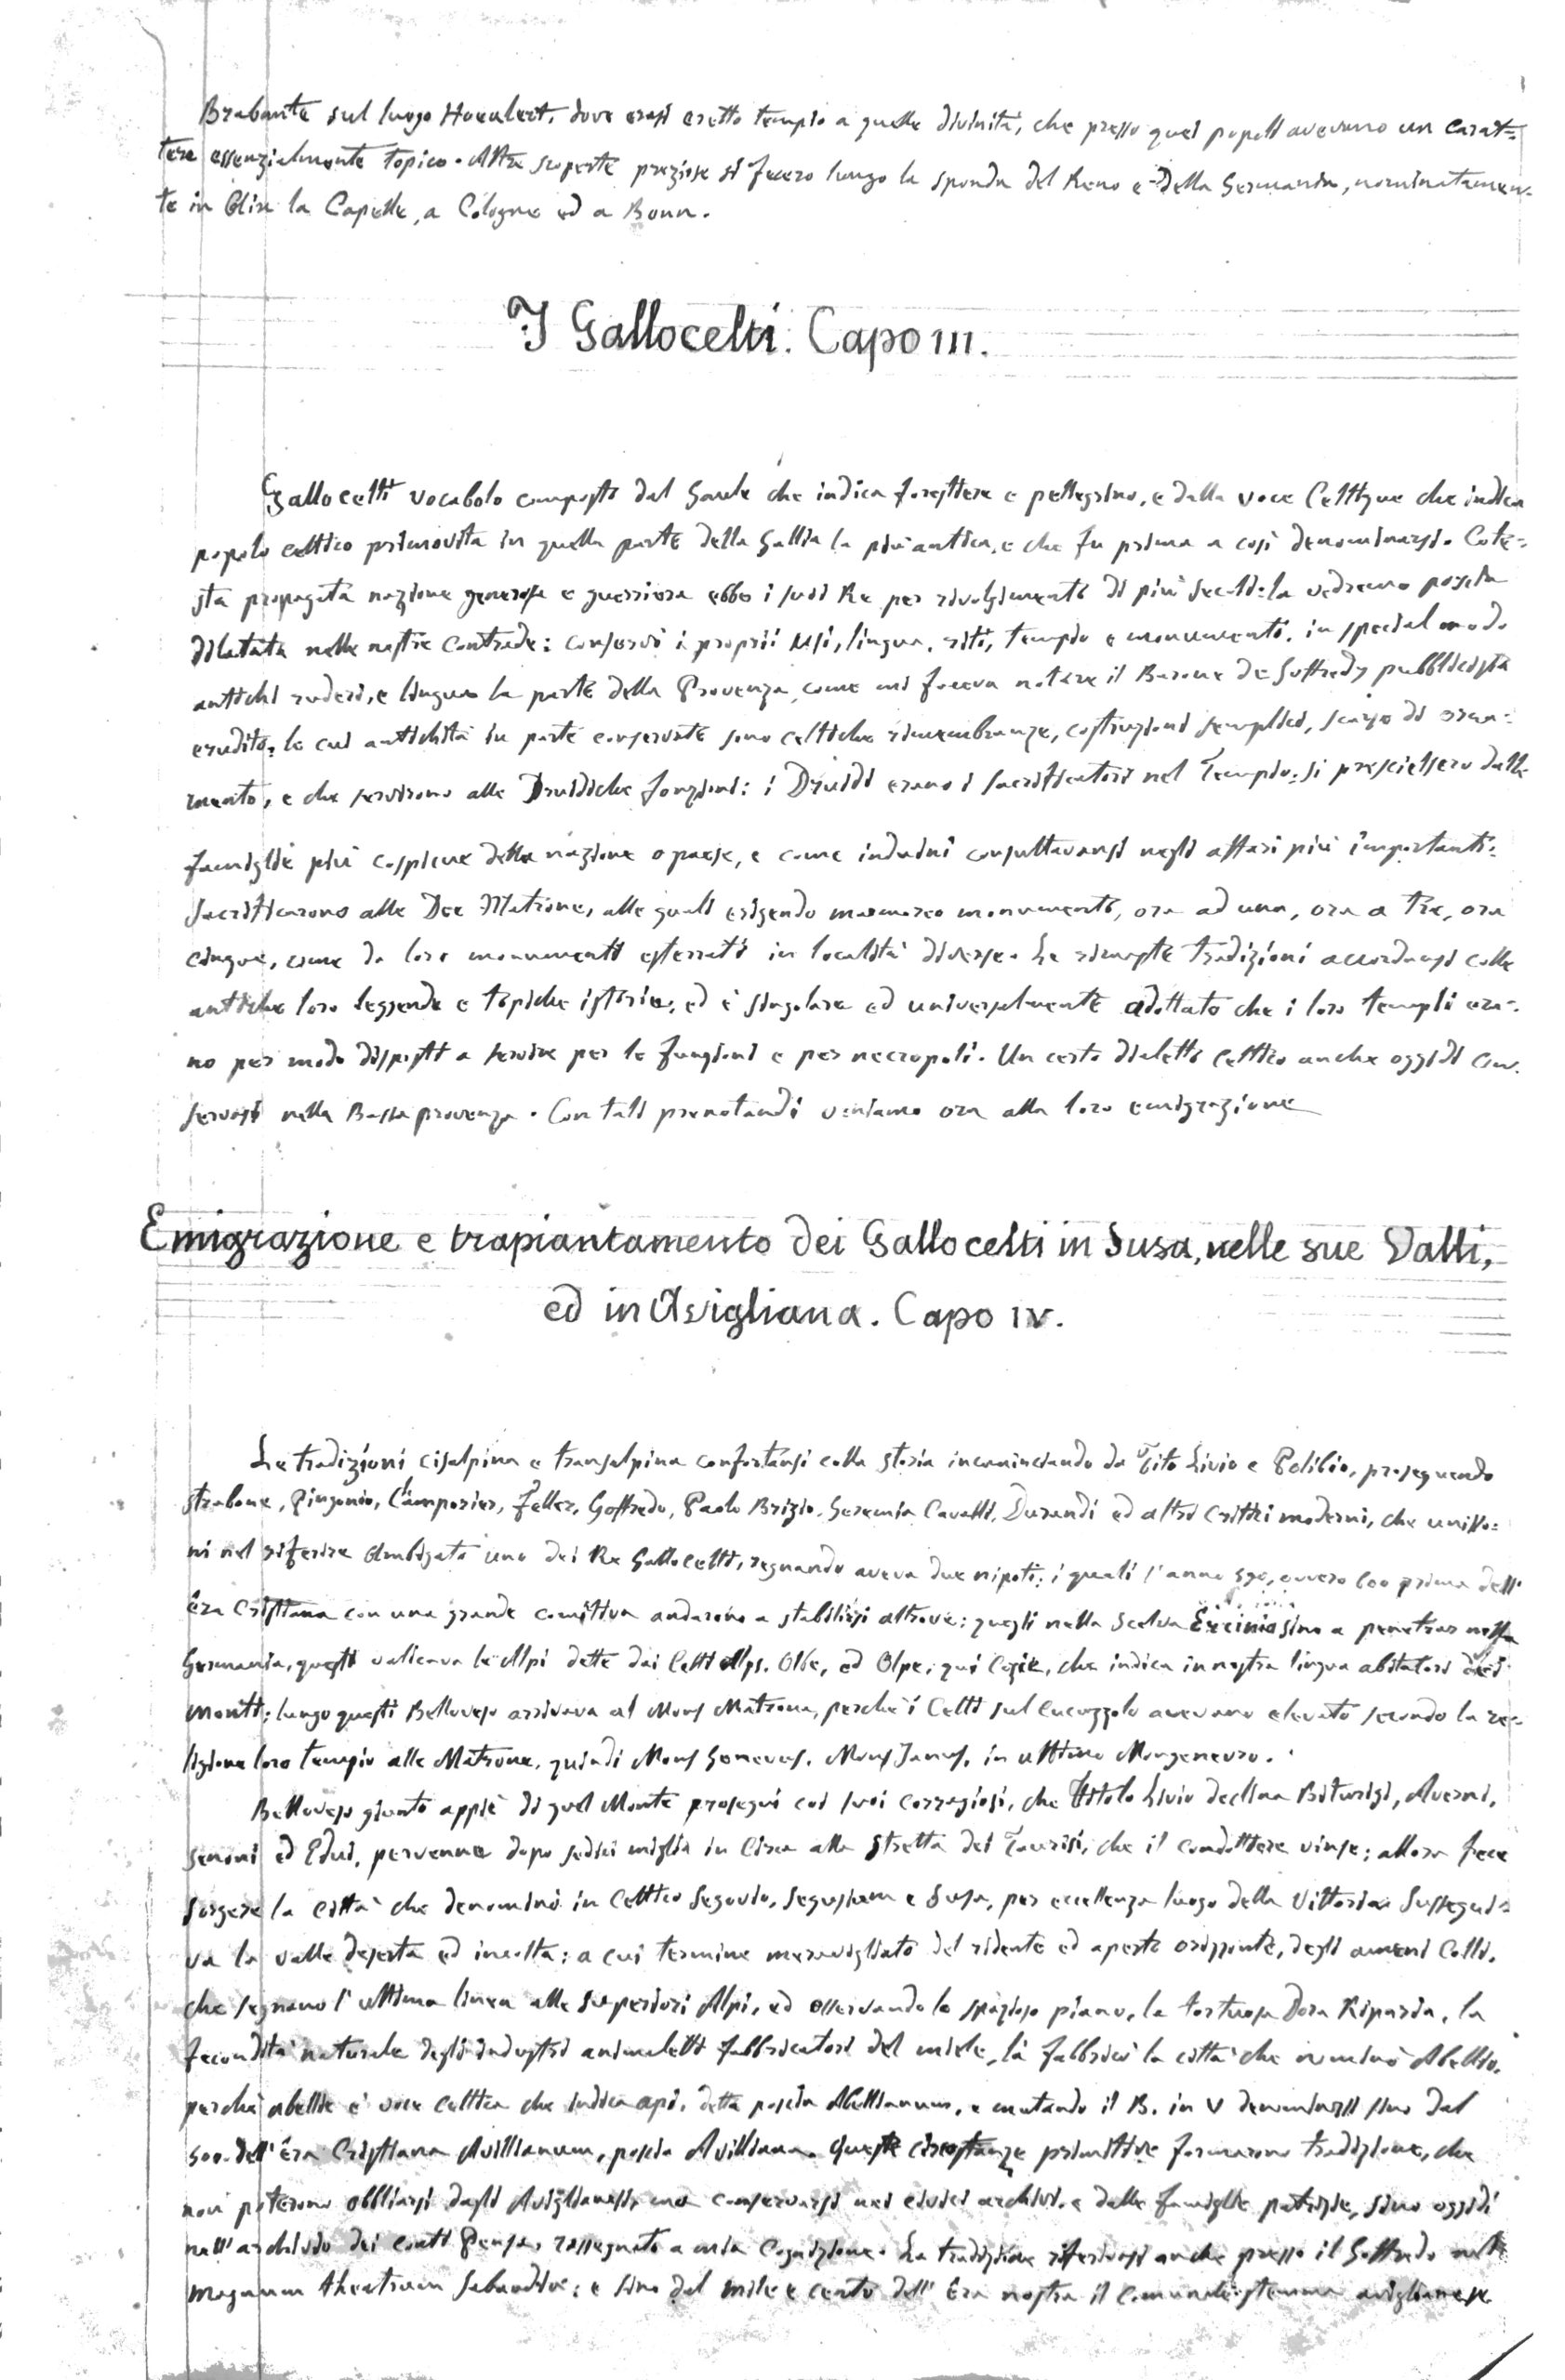 Brabante sul luogo Hoeulert, dove erasi eretto tempio a quelle divinità, che presso quei popoli avevano un carat=
tere essenzialmente topico. Altre scoperte preziose si fecero lungo la sponda del Reno e della Germania, nominatamen=
te in Olix la Capelle, a Cologne ed a Bonn.
I Gallocelti. Capo III.
Gallocelti vocabolo composto dal Gaule che indica forestiere e pellegrino, e dalla voce Celtique che indica
popolo celtico primovita in quella parte della Gallia la più antica, e che fu prima a così denominarsi. Cote=
sta propagata nazione generosa e guerriera ebbe i suoi Re per rivolgimento di più secoli: la vedremo poscia
dilatata nelle nostre contrade: conservò i proprii usi, lingua, riti, tempio e monumenti, in special modo
antichi ruderi, e lingua la parte della Provenza, come mi faceva notare il Barone de Goffredy pubblicista
erudito: le cui antichità in parte conservate sono celtiche rimembranze, costruzioni semplici, scarse di orna=
mento, e che servirono alle Druidiche fonzioni: i Druidi erano i sacrificatori nel Tempio: si prescielsero dalle
famiglie più cospicue della nazione o paese, e come indovini consultavansi negli affari più importanti:
Sacrificarono alle Dee Matrone, alle quali erigendo marmoreo monumento, ora ad una, ora a tre, ora
cinque, come da loro monumenti esterrati in località diverse. Le rimaste tradizioni accordansi colle
antiche loro leggende e topiche istorie, ed è singolare ed universalmente adottato che i loro templi era=
no per modo disposti a servire per le funzioni e per necropoli. Un certo dialetto celtico anche oggidì con=
servasi nella Bassa provenza. Con tali prenotandi veniamo ora alla loro emigrazione
Emigrazione e trapiantamento dei Gallocelti in Susa, nelle sue Valli,
ed in Avigliana. Capo IV.
Le tradizioni cisalpina e transalpina confortansi colla storia incominciando da Tito Livio e Polibio, proseguendo
Strabone, Pingonio, Camposier, Feller, Goffredo, Paolo Brizio, Geremia Cavalli, Durandi ed altri critici moderni, che unisso=
ni nel riferire Ambigato uno dei Re Gallocelti, regnando aveva due nipoti; i quali l'anno 590, ovvero 600 prima dell'
êra Cristiana con una grande comitiva andarono a stabilirsi altrove: quegli nella Scelva Ercinia sino a penetrar nella
Germania, questi valicava le Alpi dette dai Celti Alps, Olbe, ed Olpe, qui Cozie, che indica in nostra lingua abitatori dei
monti; lungo questi Belloveso arrivava al Mons Matrona, perchè i Celti sul cucuzzolo avevano elevato secondo la re=
ligione loro tempio alle Matrone, quindi Mons Gomeves, Mons Janus, in ultimo Mongenevro.
Belloveso giunto appiè di quel Monte proseguì coi suoi corragiosi, che Titolo Livio declina Biturigi, Averni,
Senoni ed Edui, pervenne dopo sedici miglia in circa alla stretta dei Taurisi, che il condottiere vinse; allora fece
sorgere la città che denominò in Celtico Segovio, Segusium e Susa, per eccellenza luogo della Vittoria. Susseguì=
va la valle deserta ed incolta: a cui termine meravigliato del ridente ed aperto orizzonte, degli ameni Colli,
che segnano l'ultima linea alle superiori Alpi, ed osservando lo spazioso piano, la tortuosa Dora Riparia, la
fecondità naturale degli industri animaletti fabbricatori del miele, là fabbricò la città che nominò Abellio,
perchè abellie è voce celtica che indica api, detta poscia Abellianum, e mutando il B. in V denominossi sino dal
500. dell'êra Cristiana Avillianum, poscia Avilliana. Queste circostanze primitive formarono tradizione, che
non poterono obbliarsi dagli Aviglianesi, ma conservarsi nei civici archivi, e dalle famiglie patrizie, sino oggidì
nell'archivio dei conti Pensa, rassegnato a mia Cognizione. La tradizione riferivasi anche presso il Goffredo nelle
magnum theatrum Sabaudiae; e sino dal mile e cento dell'êra nostra il comunale stemma aviglianese